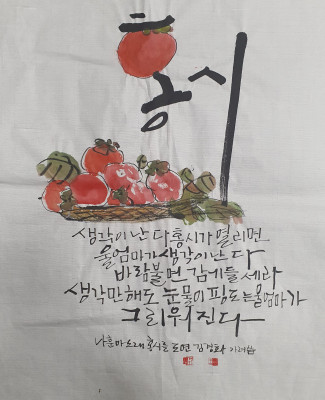 홍시
생각이 난다 홍시가 열리면
울엄마가 생각이 난다
바람불면 감기들세라
생각만해도 눈물이 핑도는 울엄마가
그리워진다
나훈아 노래 홍시를 도면